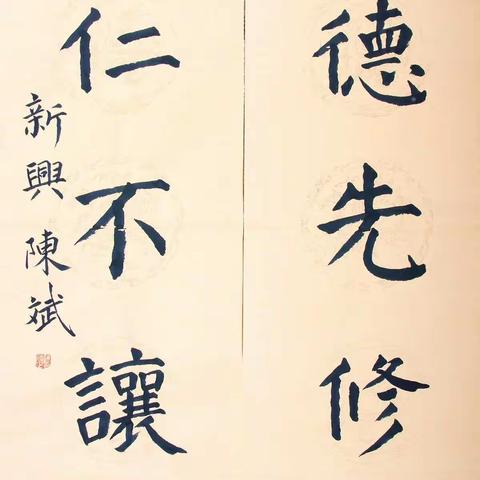 德先修
仁不讓
新興陳斌